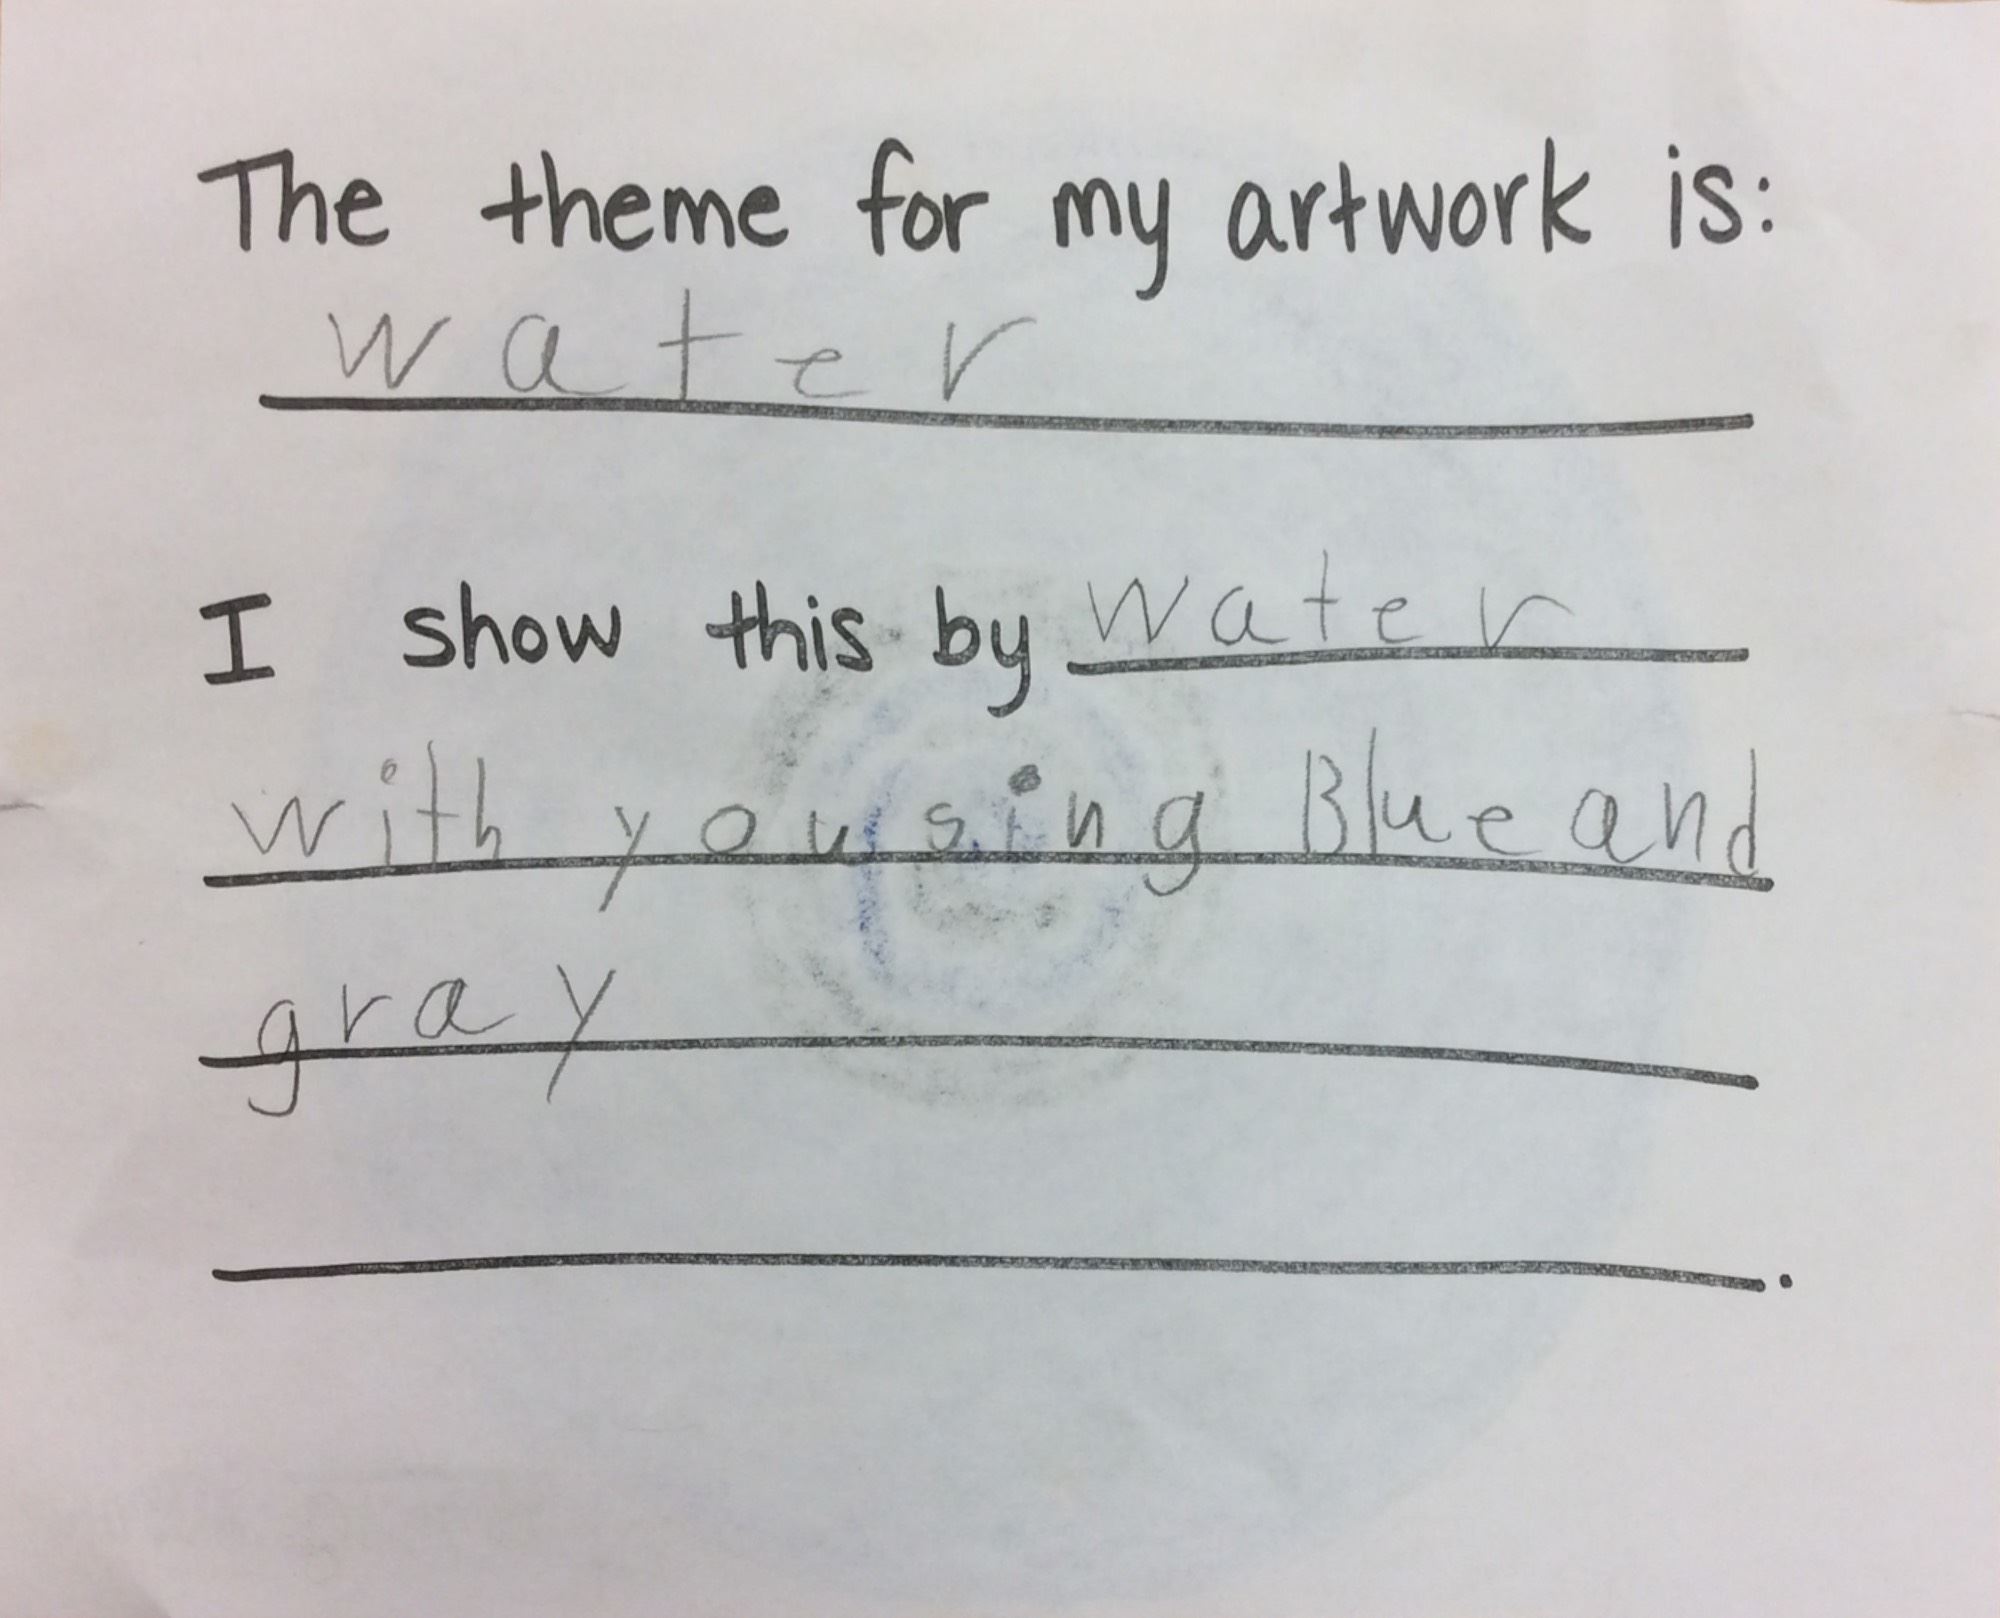 The theme for my artwork is:
water
I show this by water
with yousing Blue and
gray
.